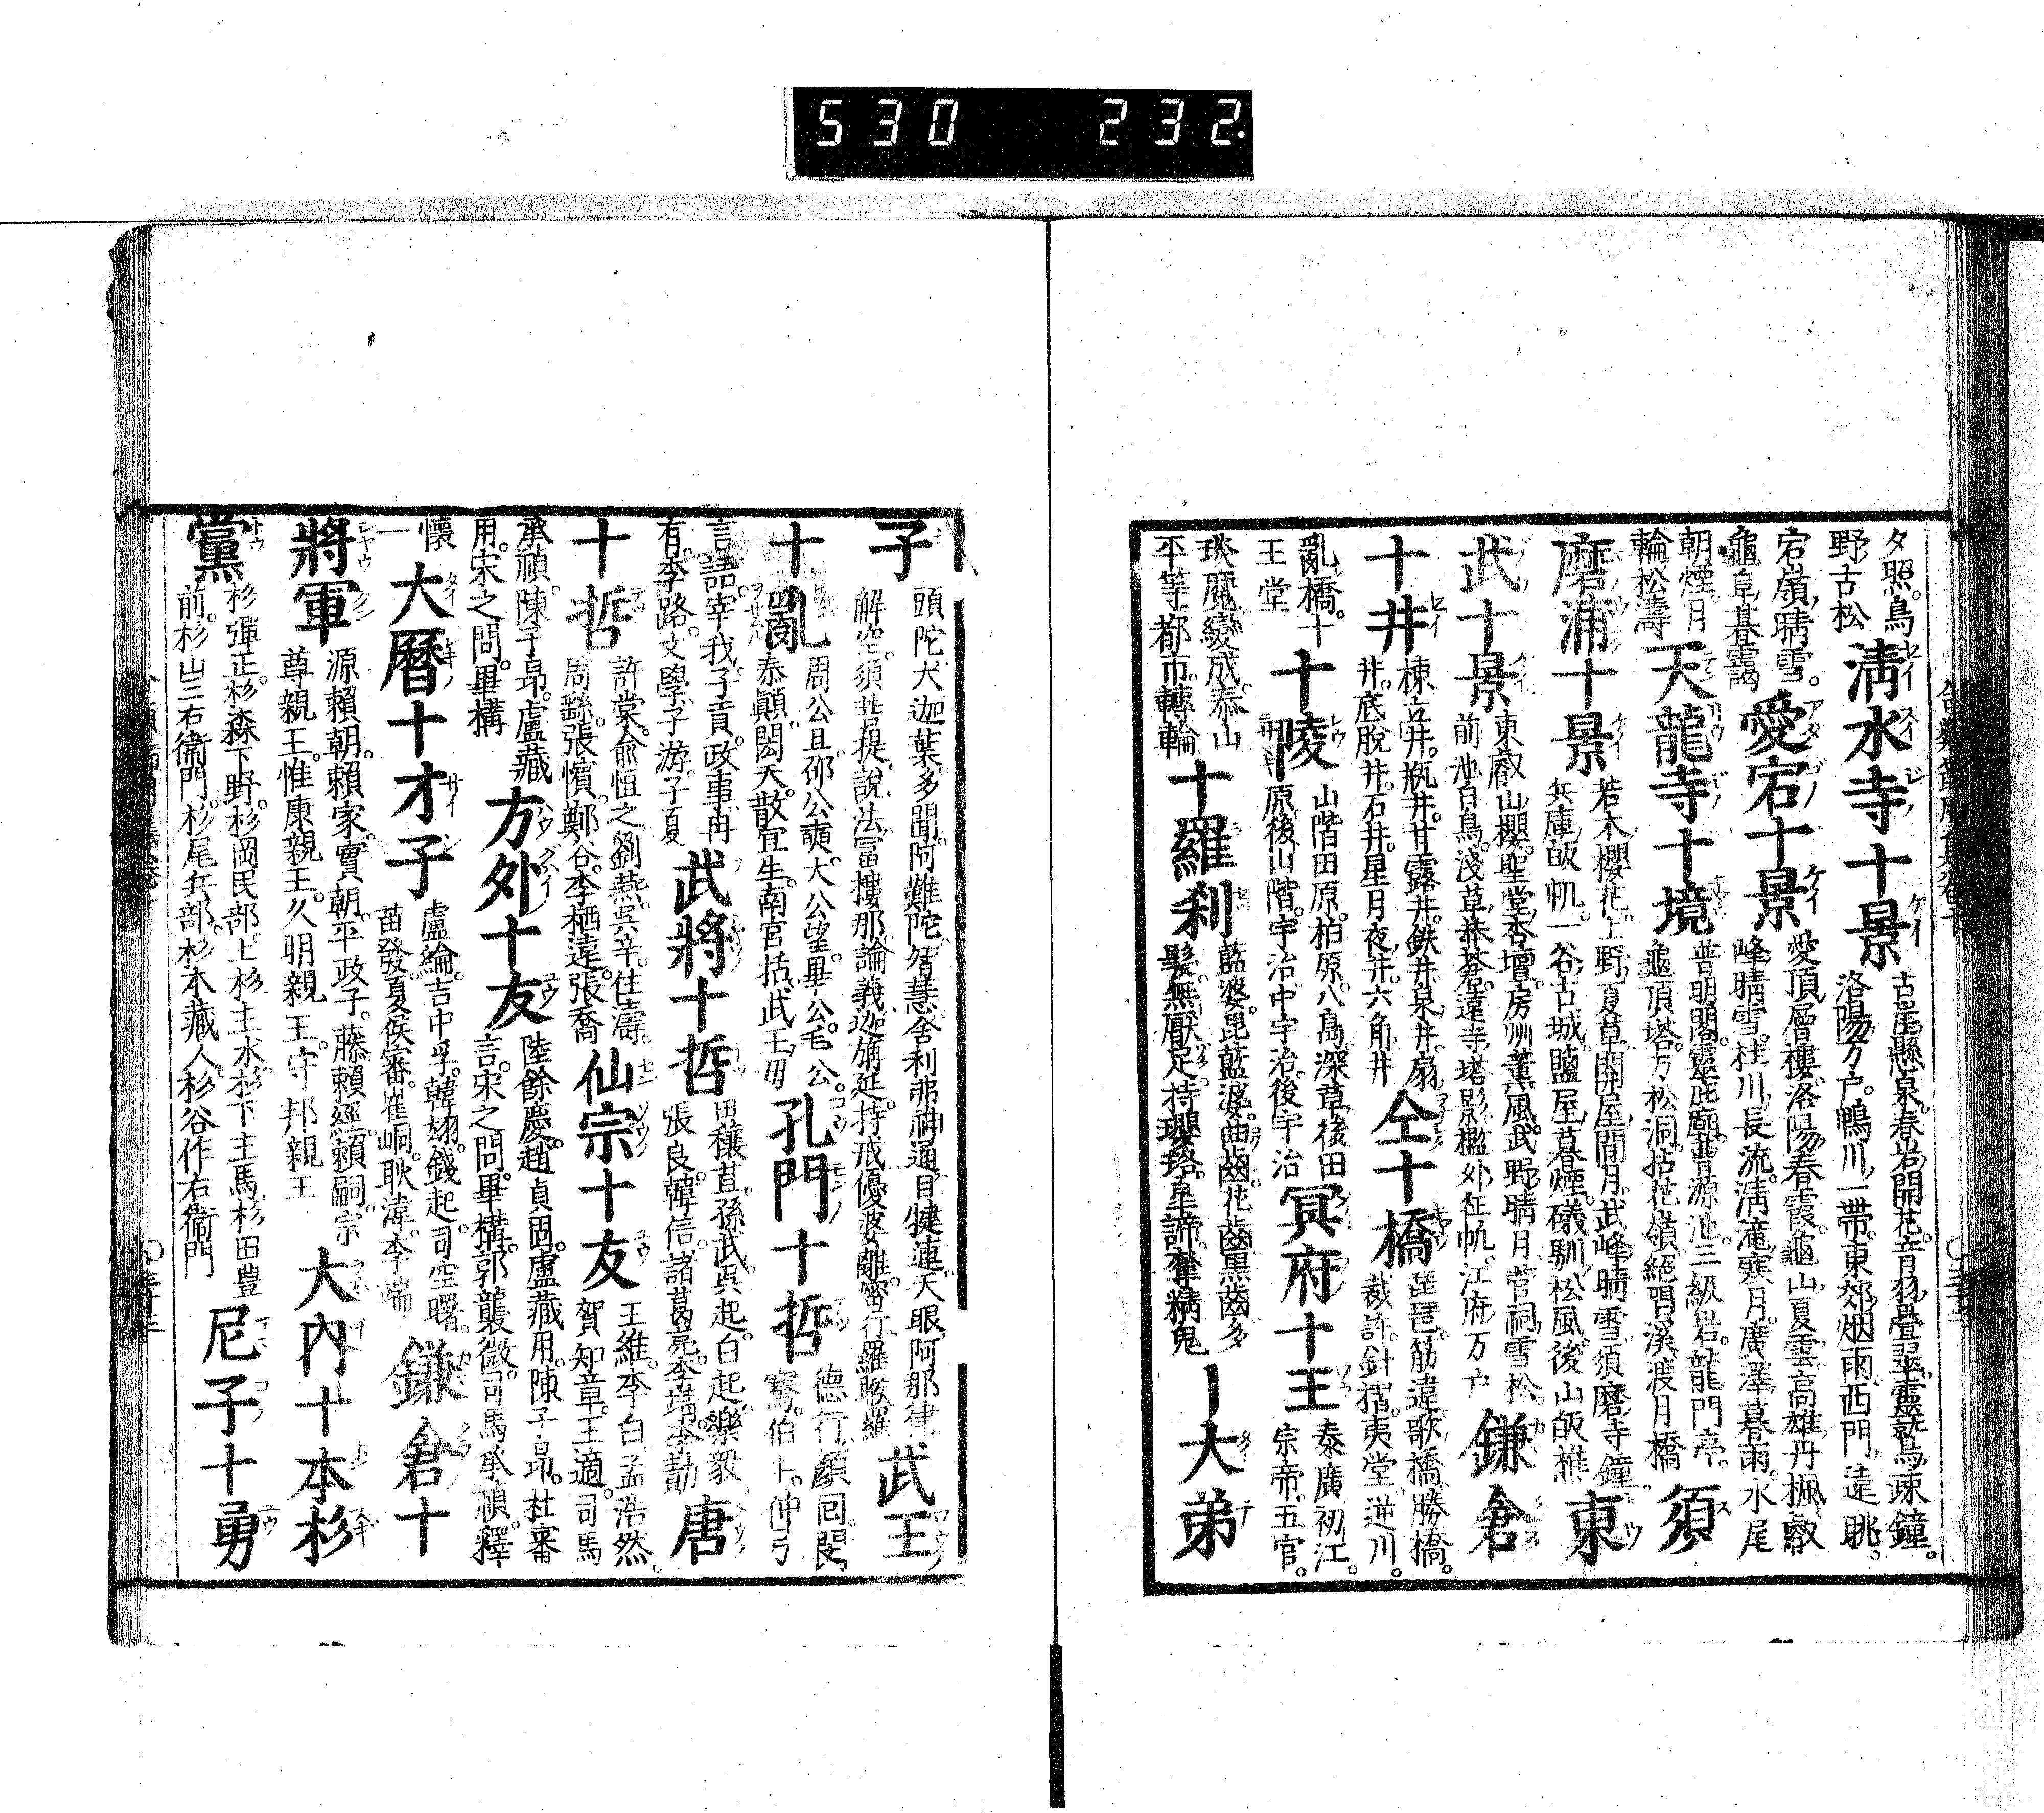 530 232.
夕照。鳥
野古松
淸水寺十景
古崖懸泉。春岩開花。音羽疊翠。靈鷲疎鐘。
洛陽万戸。鴨川一帶。東郊烟雨。西門遠眺。
宕嶺晴雪。
龜阜暮靄
愛宕十景
愛頂層樓。洛陽春霞。龜山夏雲。高雄丹楓。叡
峰晴雪。桂川長流。淸滝寒月。廣澤暮雨。水尾
朝煙。月
輪松濤
天龍寺十境
普明閣。靈庇廟。曹源池。三級岩。龍門亭。
龜頂塔。万松洞。拈花嶺。絶唱溪。渡月橋
須
磨浦十景
若木櫻花。上野夏草。関屋間月。武峰晴雪。須磨寺鐘。
兵庫皈帆。一谷古城。鹽屋暮煙。礒馴松風。後山皈樵
東
武十景
東叡山櫻。聖堂杏壇。房洲薫風。武野晴月。菅祠雪松。
前池白鳥。淺草恭蒼。遠寺塔影。檻外征帆。江府万戸
鎌倉
十井
棟立井。瓶井。甘露井。鉄井。泉井。扇
井。底脱井。石井。星月夜井。六角井
仝十橋
琵琶。筋違。歌橋。勝橋。
裁許。針摺。夷堂。逆川。
亂橋。十
王堂
十陵
山階。田原。柏原。八嶌。深草。後田
原。後山階。宇治。中宇治。後宇治
冥府十王
秦廣。初江。
宗帝。五官。
琰魔。變成。泰山
平等。都市。轉輪
十羅刹
藍婆。毘藍婆。曲齒。花齒。黒齒。多
髮。無厭足。持瓔珞。皐諦。奪精鬼
十大弟
子
頭陀大迦葉。多聞阿難陀。智慧舍利弗。神通目犍連。天眼阿那律
解空須菩提。說法冨樓那。論義迦旃延。持戒優婆離。密行羅睺羅
武王
十亂
周公旦。邵公奭。大公望。畢公。毛公。
泰顚。閎夭。散宜生。南宮括。武王毋
孔門十哲
德行。顔囘。閔
騫。伯牛。仲弓
言語。宰我。子貢。政事。冉
有。季路。文學。子游。子夏
武將十哲
田穰苴。孫武。呉起。白起。樂毅
張良。韓信。諸葛亮。李靖。李勣
唐
十哲
許棠。兪恒之。劉燕。呉辛。任濤。
周繇。張濱。鄭谷。李栖遠。張喬
仙宗十友
王維。李白。孟浩然。
賀知章。王適。司馬
承禎。陳子昻。盧藏
用。宋之問。畢構
方外十友
陸餘慶。趙貞固。盧藏用。陳子昻。杜審
言。宋之問。畢構。郭襲微。司馬承禎。釋
懷
一
大曆十才子
盧綸。吉中孚。韓翃。錢起。司空曙。
苗發。夏侯審。崔峒。耿湋。李端
鎌倉十
將軍
源賴朝。賴家。實朝。平政子。藤賴經。賴嗣。宗
尊親王。惟康親王。久明親王。守邦親王
大内十本杉
杉彈正。杉森下野。杉岡民部。上杉主水。杉下主馬。杉田豊
前。杉山三右衞門。杉尾兵部。杉本藏人。杉谷作右衞門
尼子十勇
黨